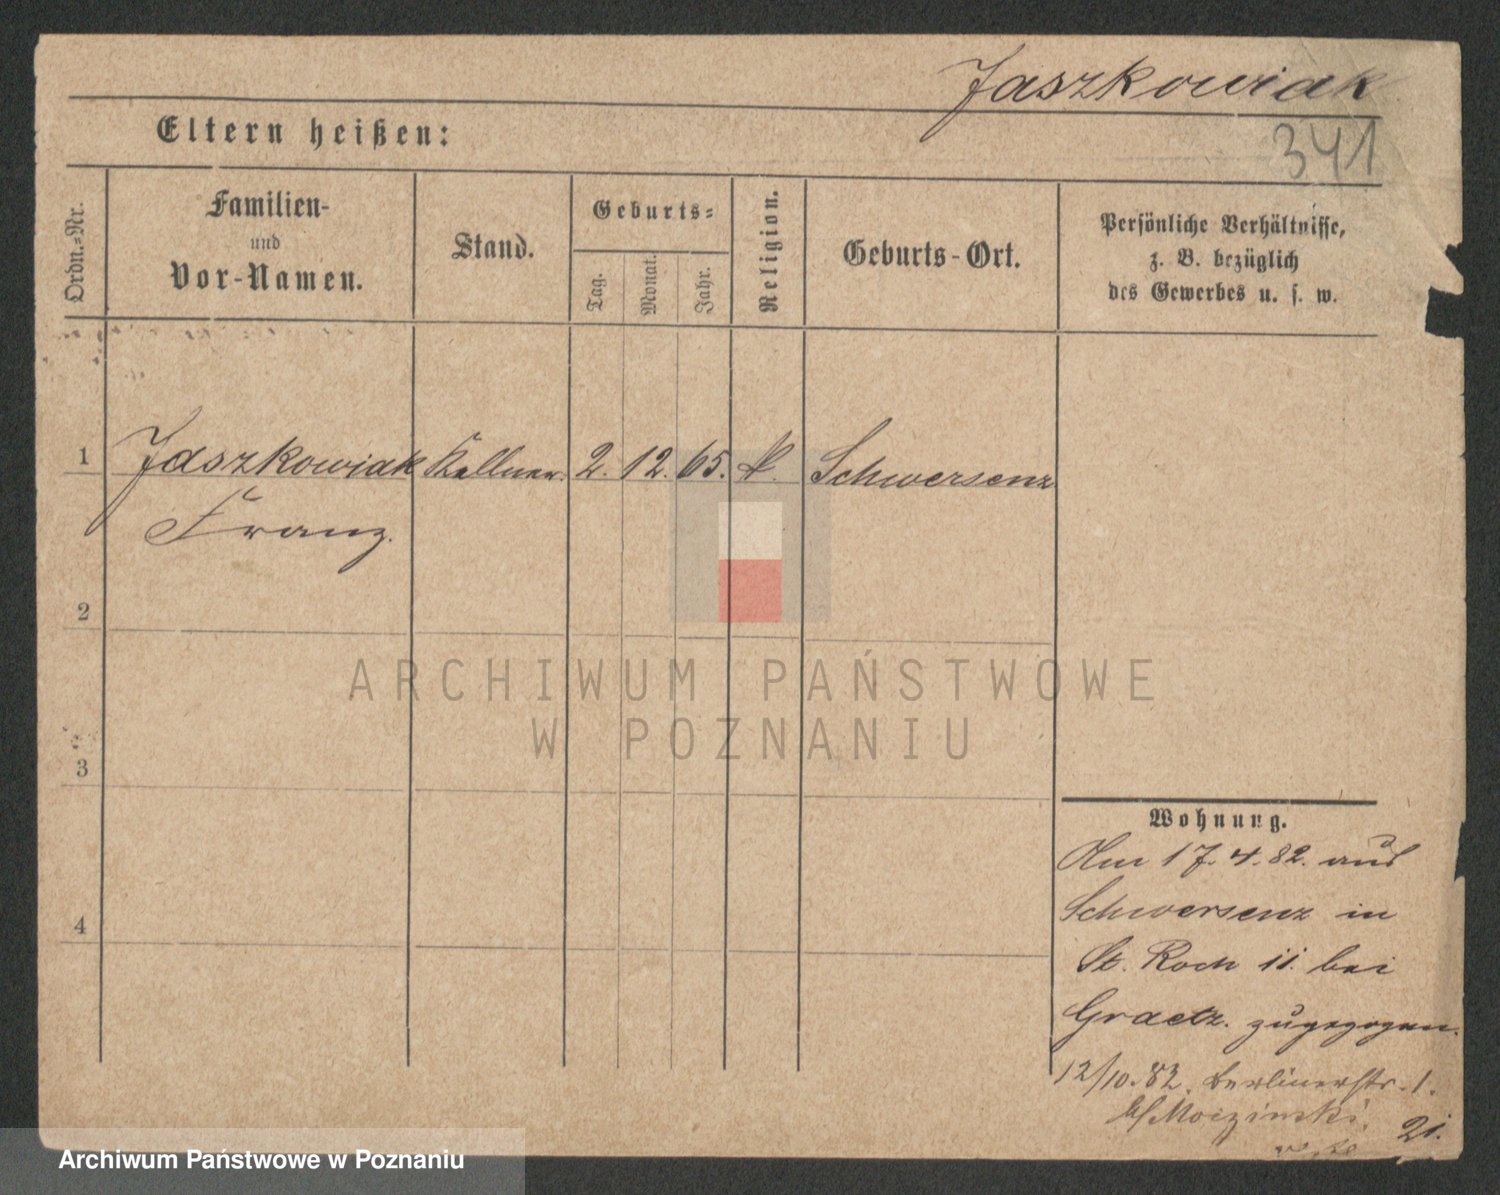 Jaszkowiak
341
Eltern heißen:
Ordn.=Nr.
Familien-
und
Vor-Namen.
Stand.
Geburts=
Tag.
Monat.
Jahr.
Religion.
Geburts-Ort.
Persönliche Verhältnisse,
z. B. bezüglich
des Gewerbes u. s. w.
1 Jaszkowiak Kellner. 2. 12. 65. k. Schwersenz
Franz.
2
3
4
ARCHIWUM PAŃSTWOWE
W POZNANIU
Wohnung.
Am 17.4.82. aus
Schwersenz in
St. Roch 11. bei
Graetz. zugezogen.
12/10.82. Berlinerstr. 1.
b/Moczinski.
21.
Archiwum Państwowe w Poznaniu